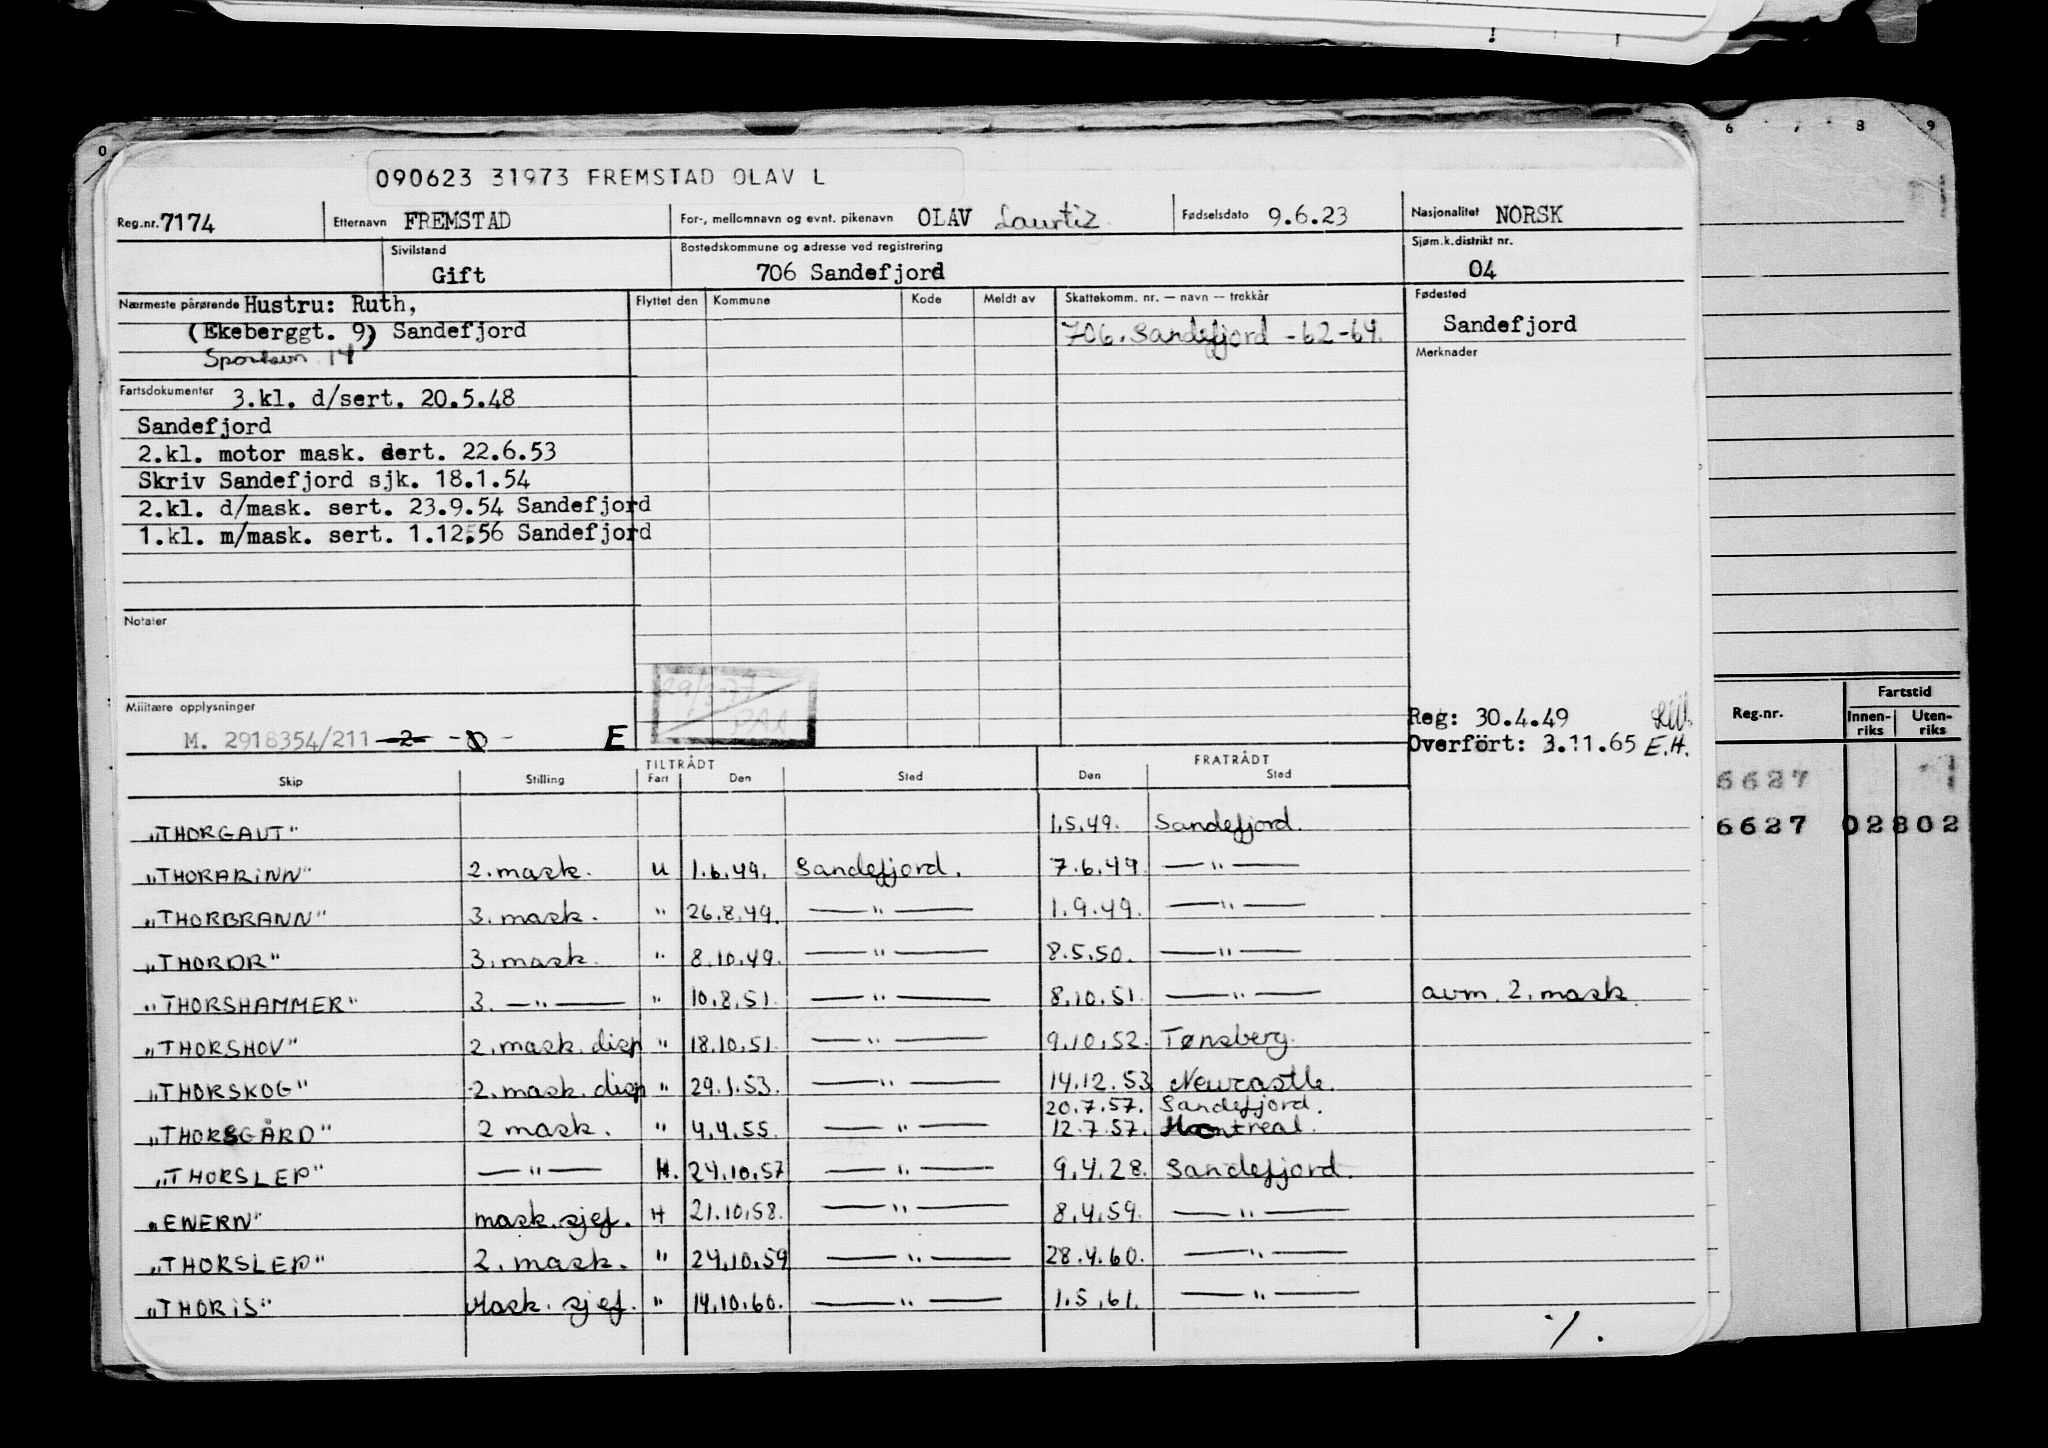 090623 31973 FREMSTAD OLAV L
Reg.nr. 7174 Etternavn FREMSTAD For-, mellomnavn og evnt. pikenavn OLAV Laurtiz Fødselsdato 9.6.23 Nasjonalitet NORSK
Sivilstand Gift Bostedskommune og adresse ved registrering 706 Sandefjord Sjøm.k.distrikt nr. 04
Nærmeste pårørende Hustru: Ruth, Flyttet den Kommune Kode Meldt av Skattekomm. nr. — navn — trekkår Fødested
(Ekeberggt. 9) Sandefjord 706. Sandefjord -62-64. Sandefjord
14 Merknader
Fartsdokumenter 3.kl. d/sert. 20.5.48
Sandefjord
2.kl. motor mask. sert. 22.6.53
Skriv Sandefjord sjk. 18.1.54
2.kl. d/mask. sert. 23.9.54 Sandefjord
1.kl. m/mask. sert. 1.12.56 Sandefjord
Notater
Militære opplysninger
M. 2918354/211 -2- E
Reg: 30.4.49
Overført: 3.11.65 E.H.
TILTRÅDT FRATRÅDT
Skip Stilling Fart Den Sted Den Sted
"THORGAUT" 1.5.49. Sandefjord.
"THORARINN" 2. mask. U 1.6.49. Sandefjord. 7.6.49. — " —
"THORBRANN" 3. mask. " 26.8.49. — " — 1.9.49. — " —
"THORDR" 3. mask. " 8.10.49. — " — 8.5.50. — " —
"THORSHAMMER" 3. — " — " 10.8.51. — " — 8.10.51. — " — avm. 2. mask.
"THORSHOV" 2. mask. disp " 18.10.51. — " — 9.10.52. Tønsberg.
"THORSKOG" 2. mask. disp " 29.1.53. — " — 14.12.53 Newcastle.
20.7.57. Sandefjord.
"THORSGÅRD" 2 mask. " 4.4.55. — " — 12.7.57. Montreal.
"THORSLEP" — " — H. 24.10.57 — " — 9.4.28. Sandefjord.
"ENERN" mask. sjef. H 21.10.58. — " — 8.4.59. — " —
"THORSLEP" 2. mask. " 24.10.59 — " — 28.4.60. — " —
"THORIS" Mask. sjef. " 14.10.60. — " — 1.5.61. — " —
%.
0
6 7 8 9
Reg.nr. Fartstid
Innen-riks Uten-riks
6627
6627 02802